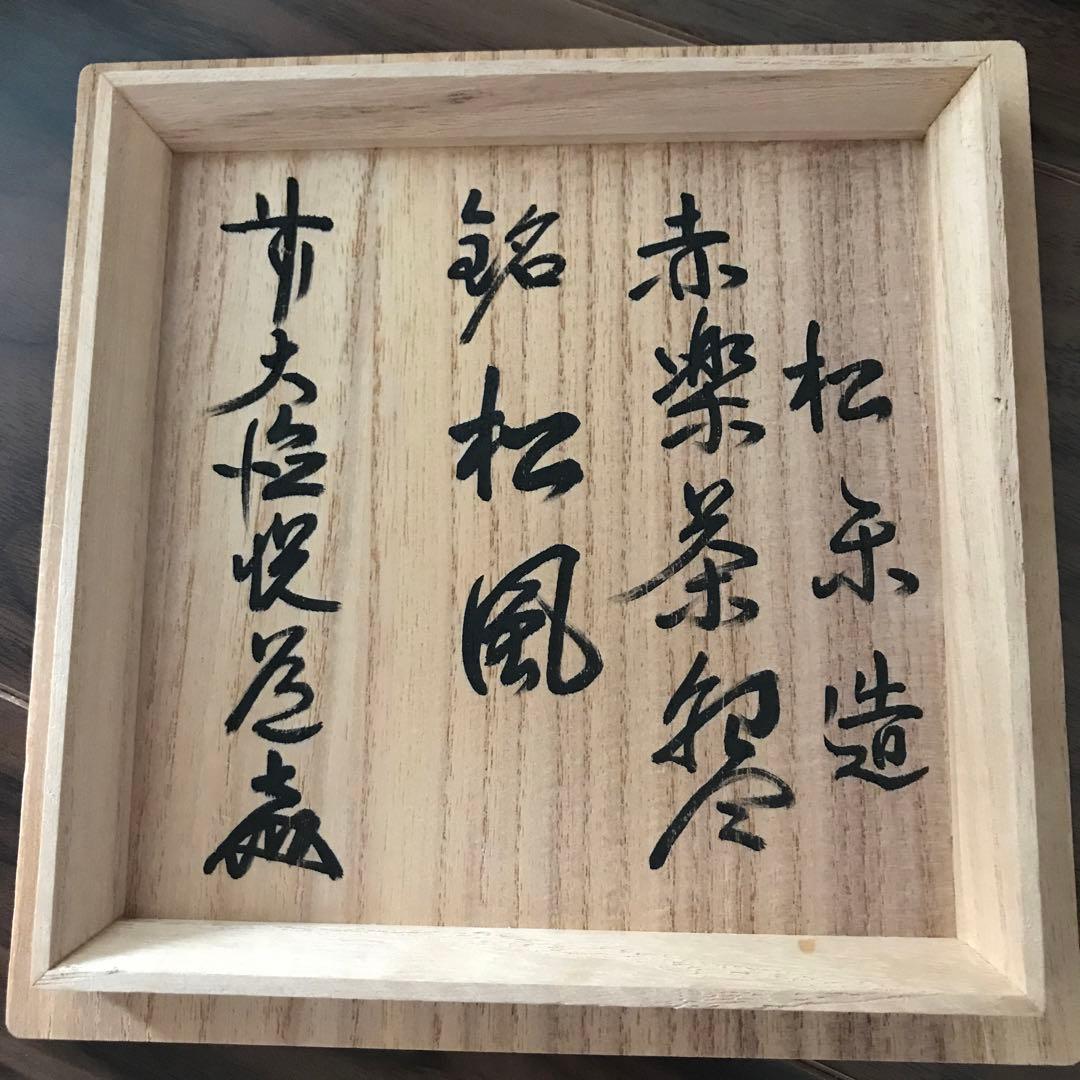 松楽造
赤楽茶盌
銘 松風
前大徳悦道